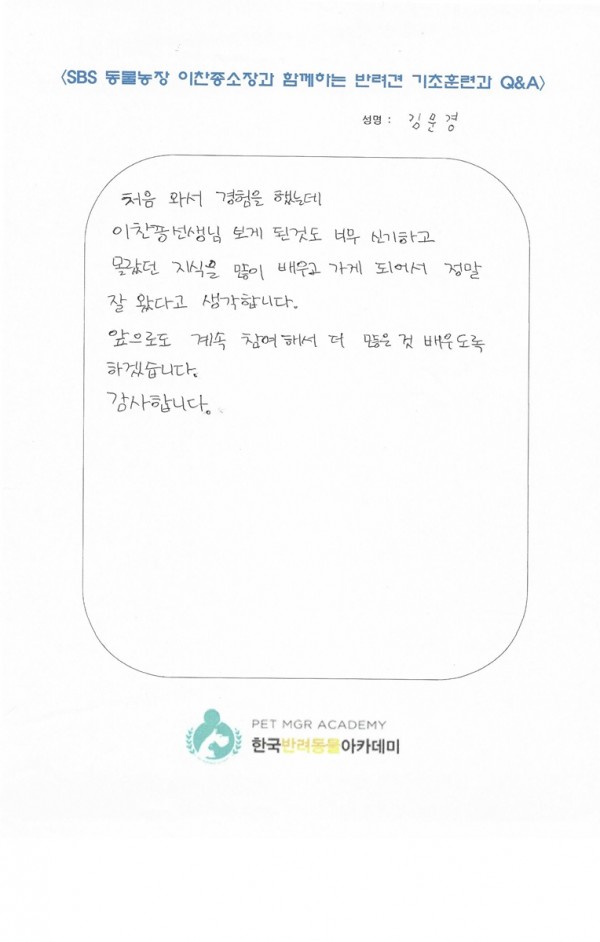 〈SBS 동물농장 이찬종소장과 함께하는 반려견 기초훈련과 Q&A〉
성명 : 김운경
처음 와서 경험을 했는데
이찬종선생님 보게 된것도 너무 신기하고
몰랐던 지식을 많이 배우고 가게 되어서 정말
잘 왔다고 생각합니다.
앞으로도 계속 참여해서 더 많은 것 배우도록
하겠습니다.
감사합니다.
PET MGR ACADEMY
한국반려동물아카데미